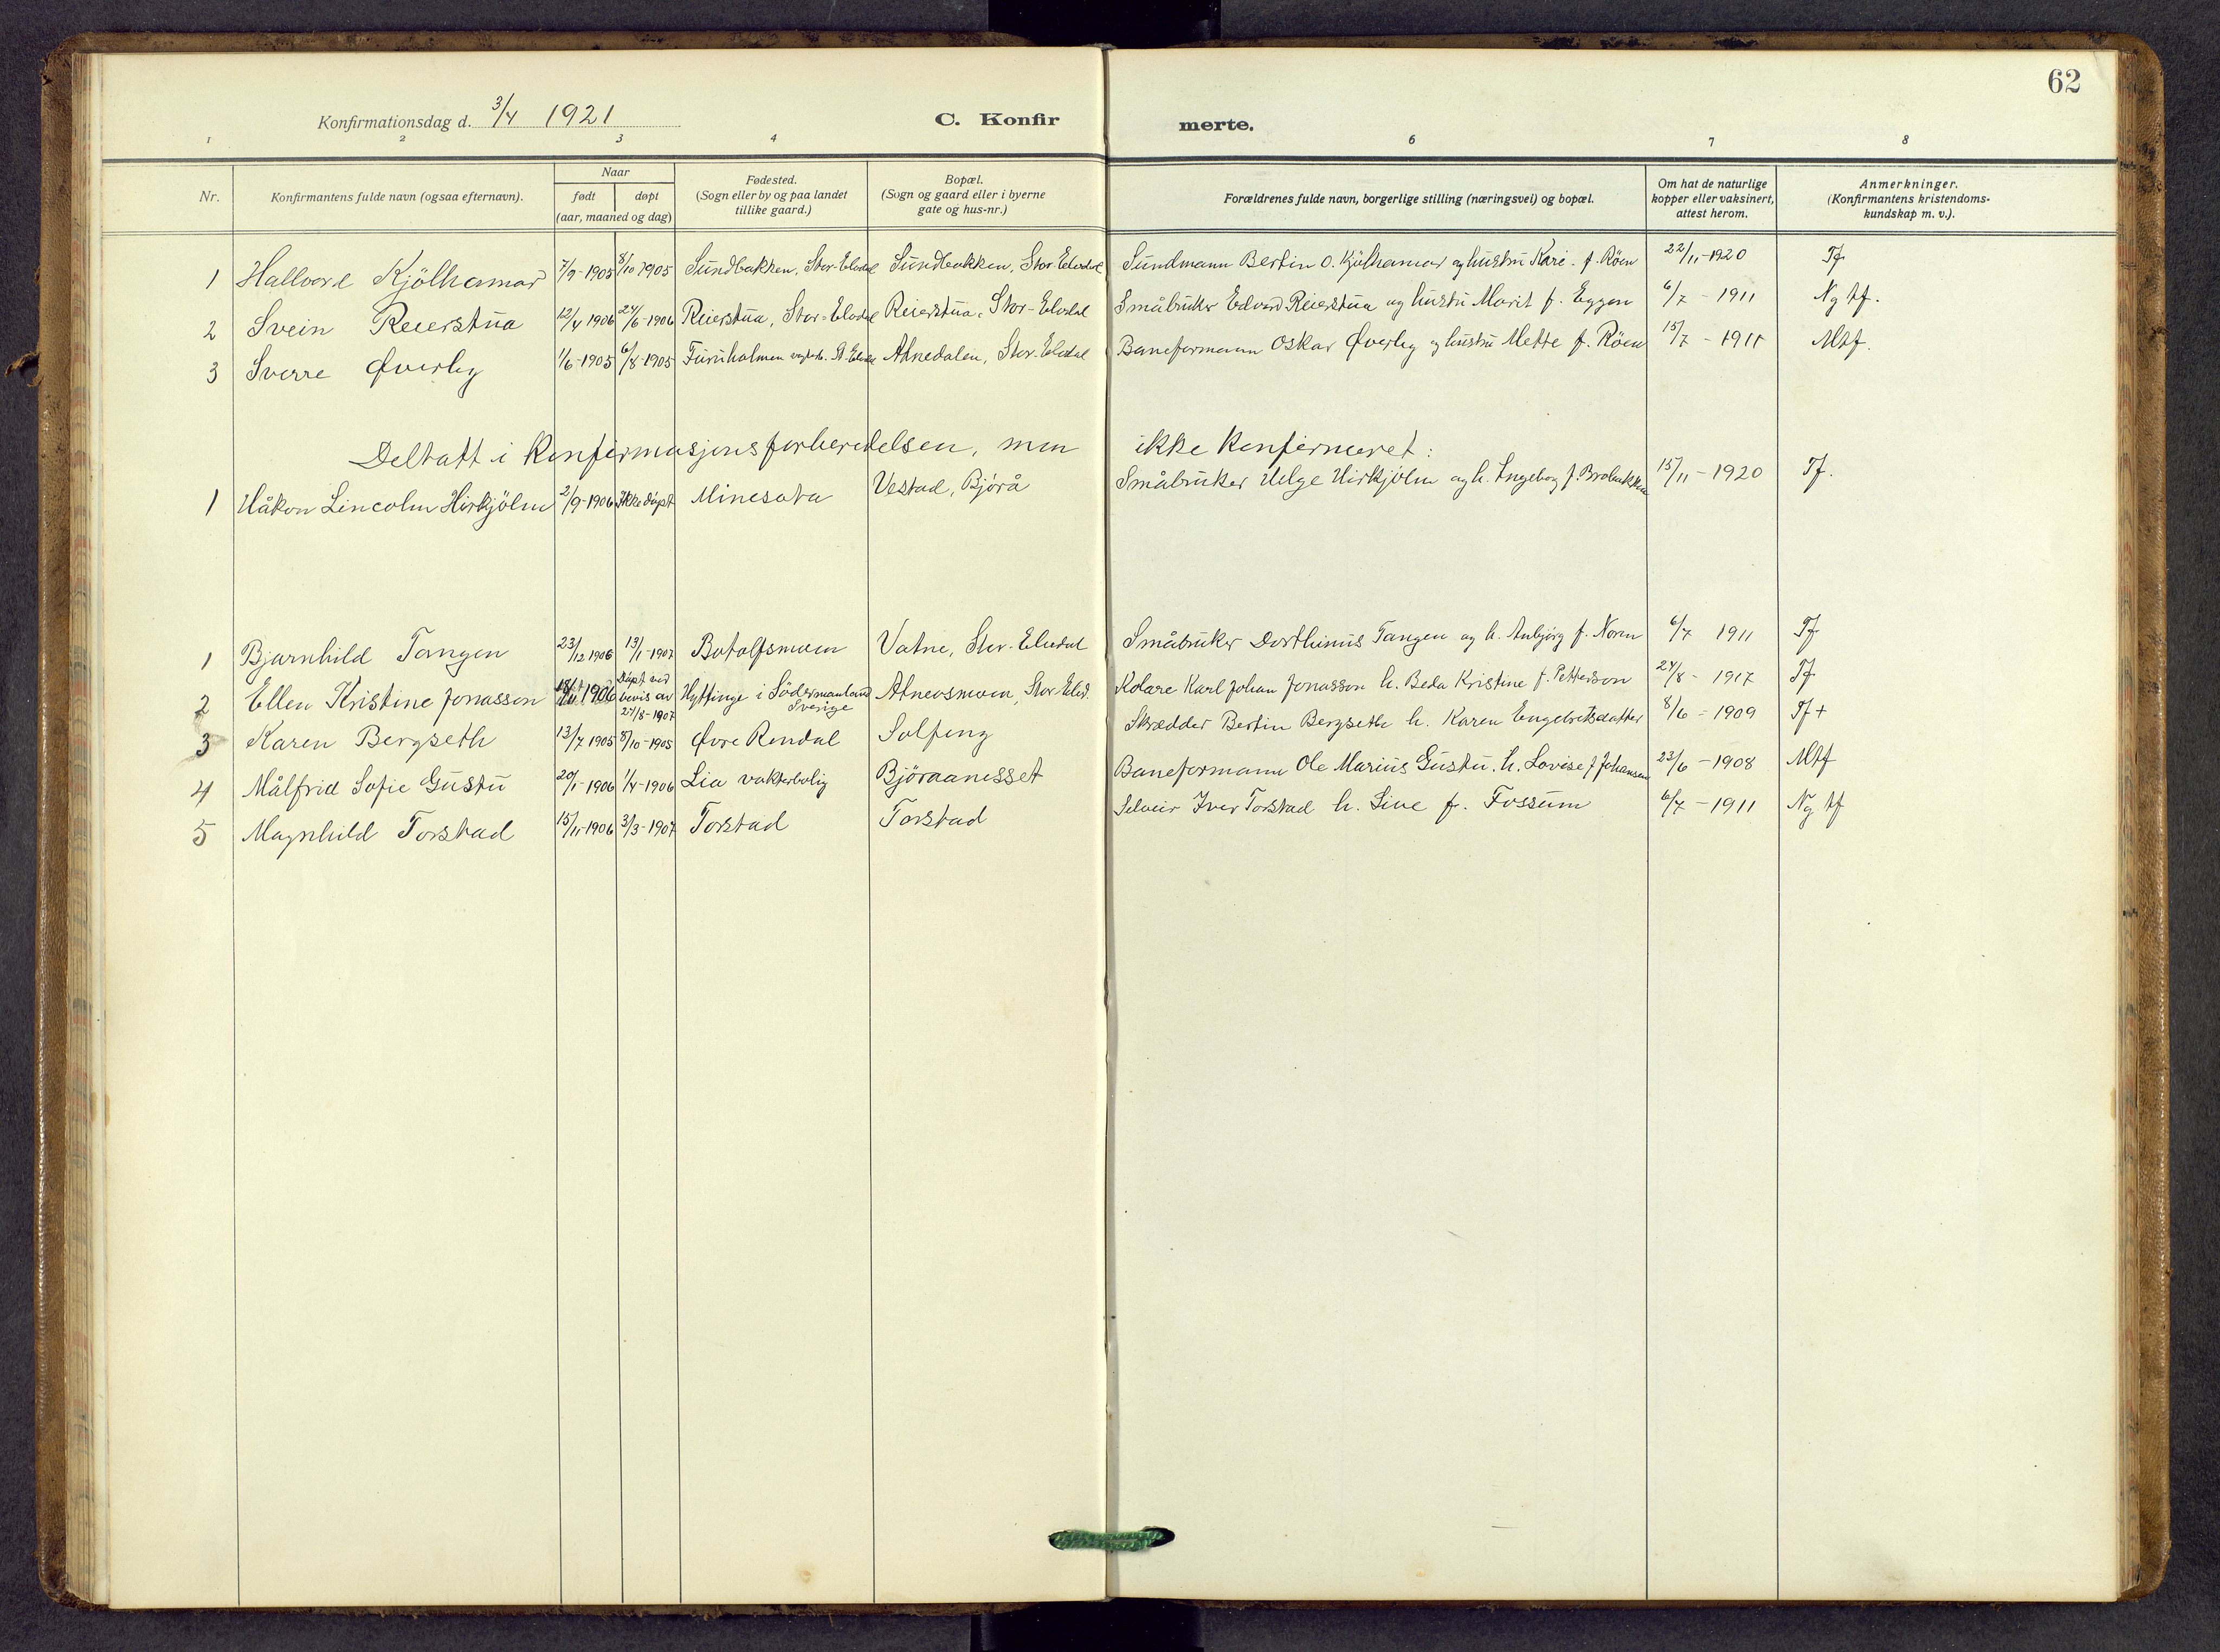 62
Konfirmationsdag d. 3/4 1921
C. Konfir merte.
1 2 3 4 6 7 8
Nr. Konfirmantens fulde navn (ogsaa efternavn). Naar født døpt (aar, maaned og dag) Fødested. (Sogn eller by og paa landet tillike gaard.) Bopæl. (Sogn og gaard eller i byerne gate og hus-nr.) Forældrenes fulde navn, borgerlige stilling (næringsvei) og bopæl. Om hat de naturlige kopper eller vaksinert, attest herom. Anmerkninger. (Konfirmantens kristendomskundskap m. v.).
1 Hallvard Kjölhamar 7/9-1905 8/10 1905 Sundbakken, Stor-Elvdal Sundbakken, Stor-Elvdal Sundmann Bertin O. Kjölhamar og hustru Kari f. Röen 22/11-1920 Tf
2 Svein Reierstua 12/4 1906 24/6-1906 Reierstua, Stor-Elvdal Reierstua, Stor-Elvdal Småbruker Edvard Reierstua og hustru Marit f. Eggen 6/7 - 1911 Ng tf.
3 Sverre Øverby 1/6-1905 6/8-1905 Furuholmen St. Elvdal Atnedalen, Stor-Elvdal Baneformann Oskar Øverby og hustru Mette f. Röen 15/7 - 1911 Mtf.
Deltatt i Konfirmasjonsforberedelsen, men ikke Konfirmeret:
1 Håkon Lincoln Hirkjölen 2/9-1906 Ikke döpt Minesota Vestad, Bjørå Småbruker Helge Hirkjölen og h. Ingeborg f. Brobakken 15/11-1920 Tf.
1 Bjarnhild Tangen 23/12 1906 13/1-1907 Botolfsmoen Vatne, Stor-Elvedal Småbruker Dorthinius Tangen og h. Anbjörg f. Noren 6/7 1911 Tf
2 Ellen Kristine Jonasson 1906 Döpt ved bevis av 27/8-1907 Hyttinge i Södermanland Sverige Atneosmoen, Stor-Elvd. Kolare Karl Johan Jonasson h. Beda Kristine f. Petterson 24/8 - 1917 Tf
3 Karen Bergseth 13/7 1905 8/10-1905 Øvre Rendal Solfeng Skrædder Bertin Bergseth h. Karen Engebretsdatter 8/6 - 1909 Tf+
4 Målfrid Sofie Gustu 20/1-1906 1/4-1906 Lia vokterbolig Björaanesset Baneformann Ole Marius Gustu. h. Lovise f Johansen 23/6 - 1908 Mtf
5 Magnhild Torstad 15/11-1906 3/3-1907 Torstad Torstad Selveir Iver Torstad h. Live f. Fossum 6/7 - 1911 Ng tf